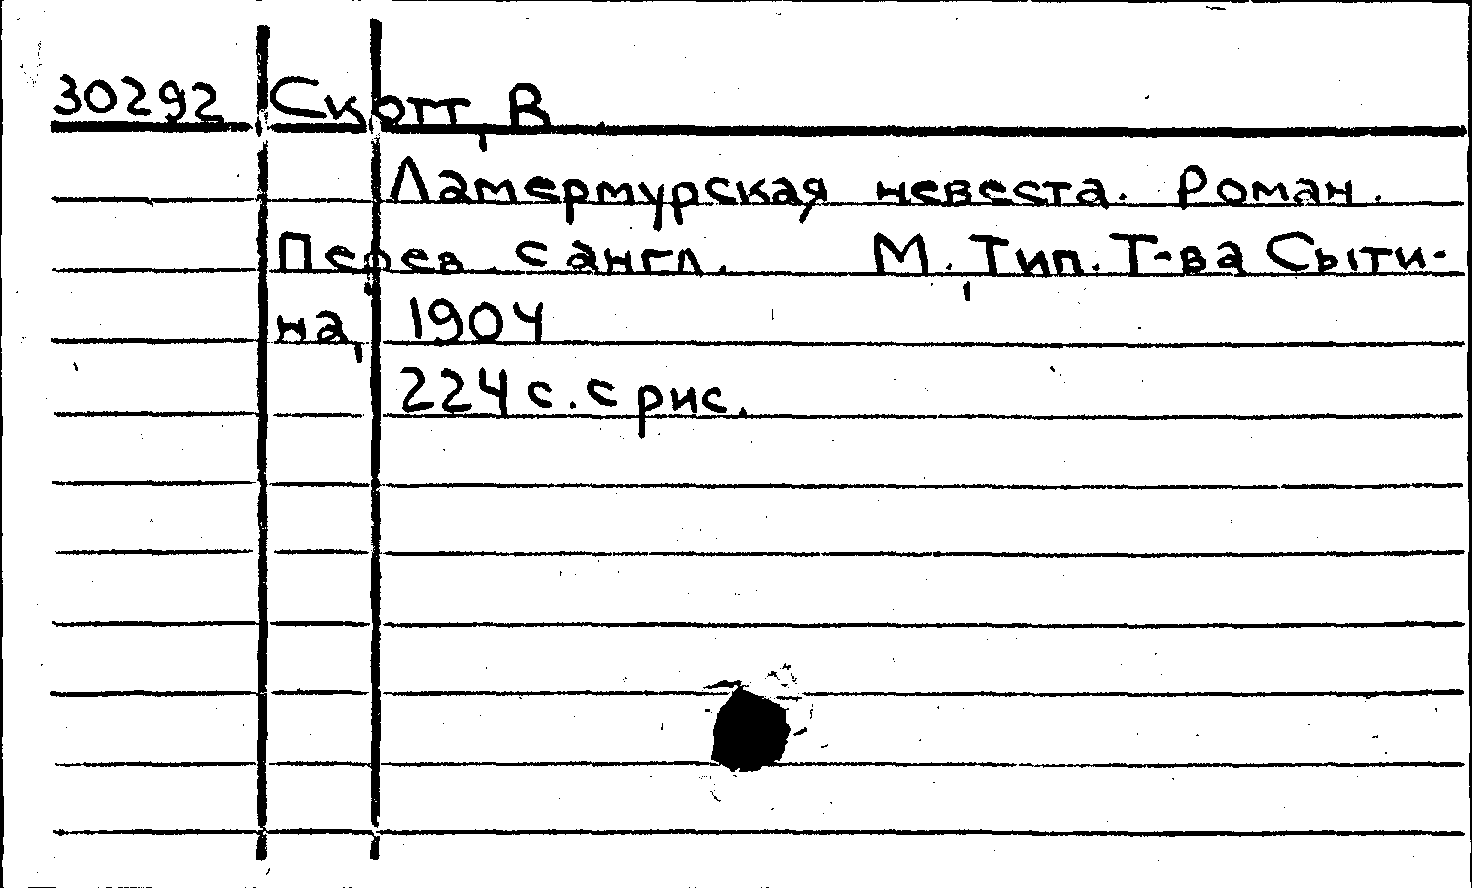 30292 Скотт, В.
Ламермурская невеста. Роман.
Перев. с англ. М., Тип. Т-ва Сыти-
на, 1904
224 с. с рис.